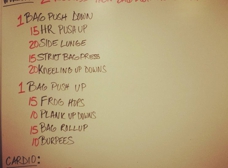 1 BAG PUSH DOWN
15 HR PUSH UP
20 SIDE LUNGE
15 STRICT BAG PRESS
20 KNEELING UP DOWNS
1 BAG PUSH UP
15 FROG HOPS
10 PLANK UP DOWNS
15 BAG ROLLUP
10 BURPEES
CARDIO: